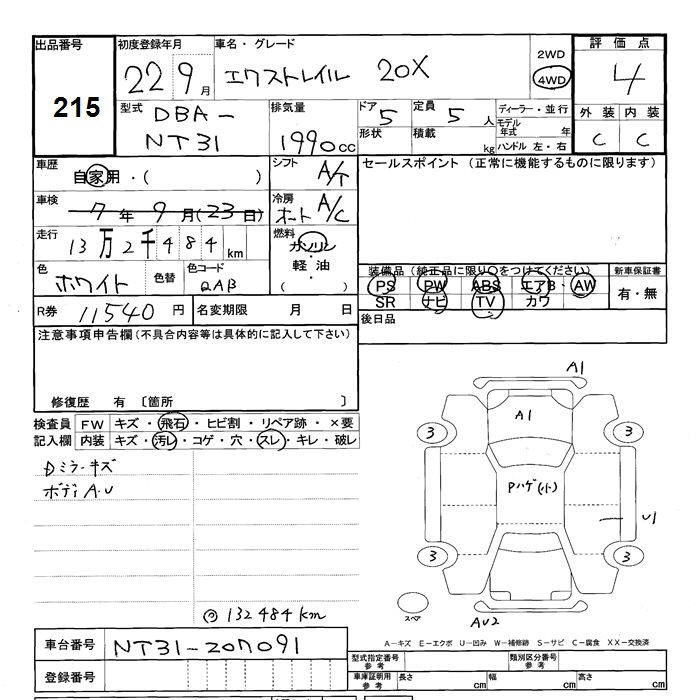 出品番号 初度登録年月 車名・グレード 2WD 評価点
215 22 9月 エクストレイル 20X 4WD 4
型式 DBA- NT31 排気量 1990cc ドア 5 定員 5人 ディーラー・並行 外装 内装
形状 積載 kg モデル年式 年 ハンドル 左・右 C C
車歴 自家用・( ) シフト A/T セールスポイント (正常に機能するものに限ります)
車検 7年9月(23日) 冷房 オート A/C
走行 13万2千484km 燃料 ガソリン
軽・油
( )
色 ホワイト 色替 色コード QAB 装備品(純正品に限り○をつけてください) 新車保証書
PS PW ABS エアB AW 有・無
SR ナビ TV カワ
R券 11540円 名変期限 月 日 後日品
注意事項申告欄(不具合内容等は具体的に記入して下さい)
修復歴 有 〔箇所 〕
検査員 FW キズ・飛石・ヒビ割・リペア跡・×要
記入欄 内装 キズ・汚レ・コゲ・穴・スレ・キレ・破レ
Dミラーキズ
ボディA.U
A1
A1
3 3
Pハゲ(小)
U1
3 3
スペア
AU2
@132484km
A-キズ E-エクボ U-凹み W-補修跡 S-サビ C-腐食 XX-交換済
車台番号 NT31-207091 型式指定番号 参考 類別区分番号 参考
登録番号 車庫証明用 参考 長さ cm 幅 cm 高さ cm